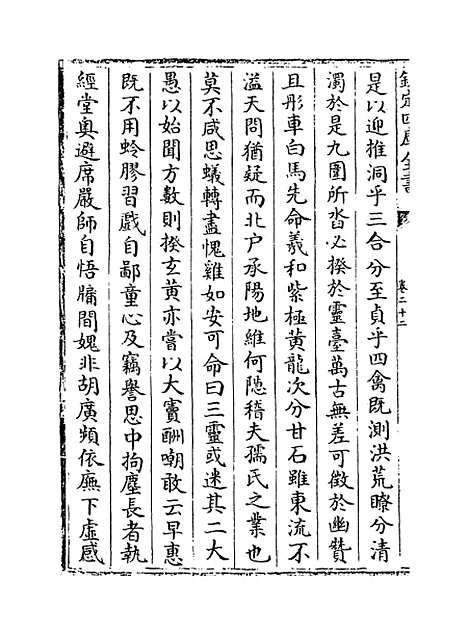 欽定四庫全書
卷二十二
是以迎推洞乎三合分至貞乎四禽既測洪荒瞭分清
濁於是九圜所沓必揆於靈臺萬古無差可徵於幽贊
且彤車白馬先命羲和紫極黄龍次分甘石雖東流不
溢天問猶疑而北户承陽地維何隠稽夫孺氏之業也
莫不咸思蟻轉盡愧雞如安可命曰三靈或迷其二大
愚以始聞方數則揆玄黄亦嘗以大賨酬嘲敢云早惠
既不用蛉膠習戲自鄙童心及竊譽思中拘塵長者執
經堂奥避席嚴師自悟牖間媿非胡廣頻依廡下虚感